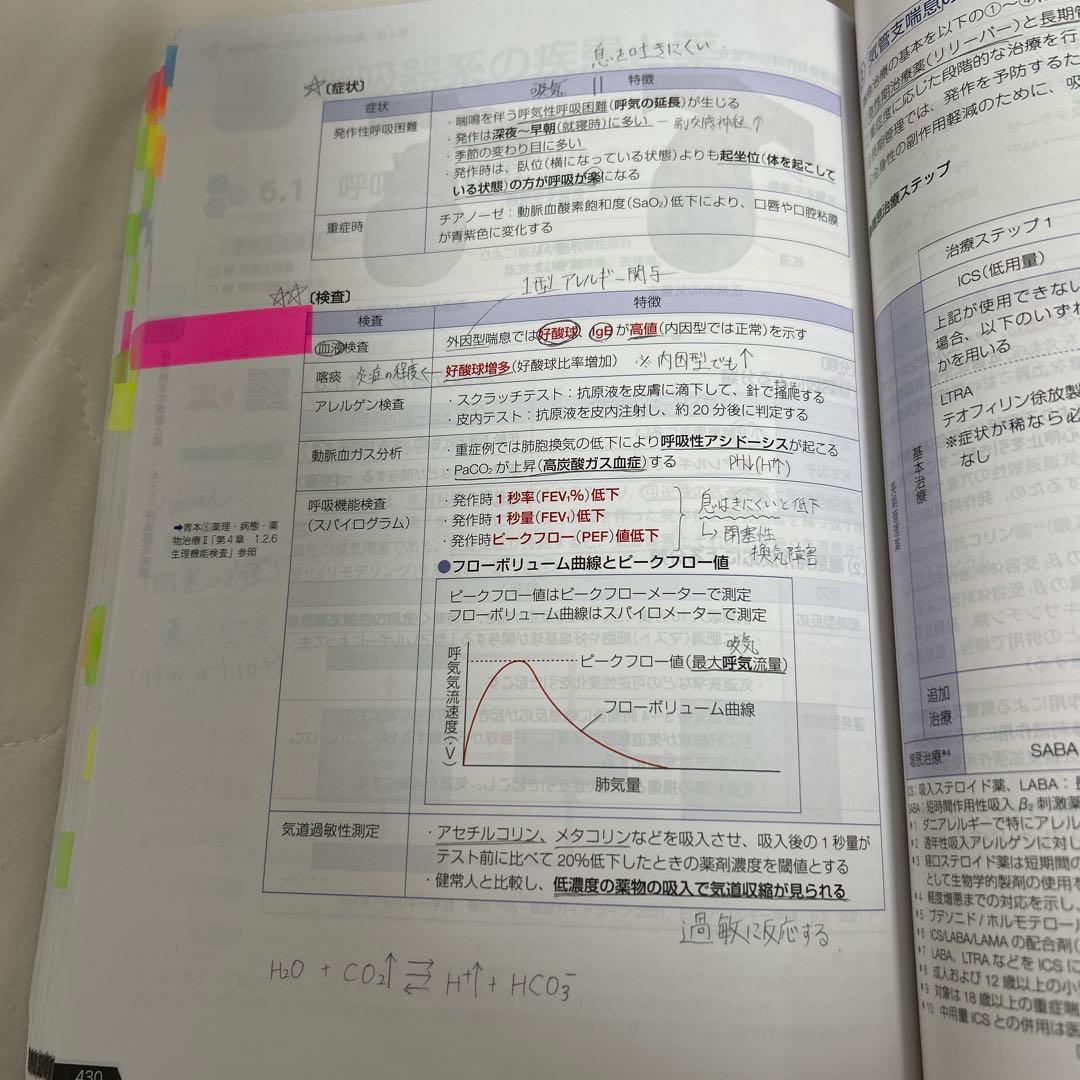 息を吐きにくい
☆〔症状〕
症状
吸気
特徴
発作性呼吸困難
・喘鳴を伴う呼気性呼吸困難(呼気の延長)が生じる
・発作は深夜〜早朝(就寝時)に多い — 副交感神経↑
・季節の変わり目に多い
・発作時は、臥位(横になっている状態)よりも起坐位(体を起こして
いる状態)の方が呼吸が楽になる
重症時
チアノーゼ：動脈血酸素飽和度(SaO₂)低下により、口唇や口腔粘膜
が青紫色に変化する
1型アレルギー関与
☆☆〔検査〕
検査
特徴
血液検査
外因型喘息では好酸球、IgEが高値(内因型では正常)を示す
喀痰 炎症の程度←
好酸球増多(好酸球比率増加) ※内因型でも↑
アレルゲン検査
・スクラッチテスト：抗原液を皮膚に滴下して、針で掻爬する
・皮内テスト：抗原液を皮内注射し、約20分後に判定する
動脈血ガス分析
・重症例では肺胞換気の低下により呼吸性アシドーシスが起こる
・PaCO₂が上昇(高炭酸ガス血症)する PH↓(H⁺↑)
呼吸機能検査
(スパイログラム)
・発作時1秒率(FEV₁%)低下
・発作時1秒量(FEV₁)低下
・発作時ピークフロー(PEF)値低下
息はきにくいと低下
↳閉塞性
換気障害
➡青本⑥薬理・病態・薬
物治療Ⅱ「第4章 1.2.6
生理機能検査」参照
●フローボリューム曲線とピークフロー値
ピークフロー値はピークフローメーターで測定
フローボリューム曲線はスパイロメーターで測定
吸気
呼気気流速度(・V)
ピークフロー値(最大呼気流量)
フローボリューム曲線
肺気量
気道過敏性測定
・アセチルコリン、メタコリンなどを吸入させ、吸入後の1秒量が
テスト前に比べて20%低下したときの薬剤濃度を閾値とする
・健常人と比較し、低濃度の薬物の吸入で気道収縮が見られる
過敏に反応する
H₂O + CO₂↑ ⇄ H⁺↑ + HCO₃⁻
430
気管支喘息の
治療の基本を以下の①〜④
急性期治療薬(リリーバー)と長期管
重症度に応じた段階的な治療を行
長期管理では、発作を予防するた
全身性の副作用軽減のために、吸
喘息治療ステップ
治療ステップ1
長期管理薬
基本治療
ICS(低用量)
上記が使用できない
場合、以下のいずれ
かを用いる
LTRA
テオフィリン徐放製
※症状が稀なら必
なし
追加
治療
増悪治療*4
SABA
ICS：吸入ステロイド薬、LABA：長
SABA：短時間作用性吸入β₂刺激薬
*1 ダニアレルギーで特にアレル
*2 通年性吸入アレルゲンに対し
*3 経口ステロイド薬は短期間の
として生物学的製剤の使用を
*4 軽度増悪までの対応を示し、
*5 ブデソニド/ホルモテロール
*6 ICS/LABA/LAMAの配合剤(
*7 LABA、LTRAなどをICSに
*8 成人および12歳以上の小
*9 対象は18歳以上の重症喘
*10 中用量ICSとの併用は医